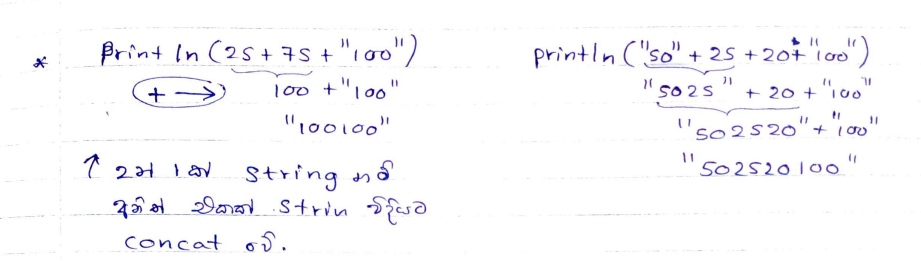 * println (25 + 75 + "100")
+ → 100 + "100"
"100100"
↑ 2න් 1ක් string නම්
අනිත් එකත් strin විදියට
concat වේ.
println ("50" + 25 + 20 + "100")
"5025" + 20 + "100"
"502520" + "100"
"502520100"